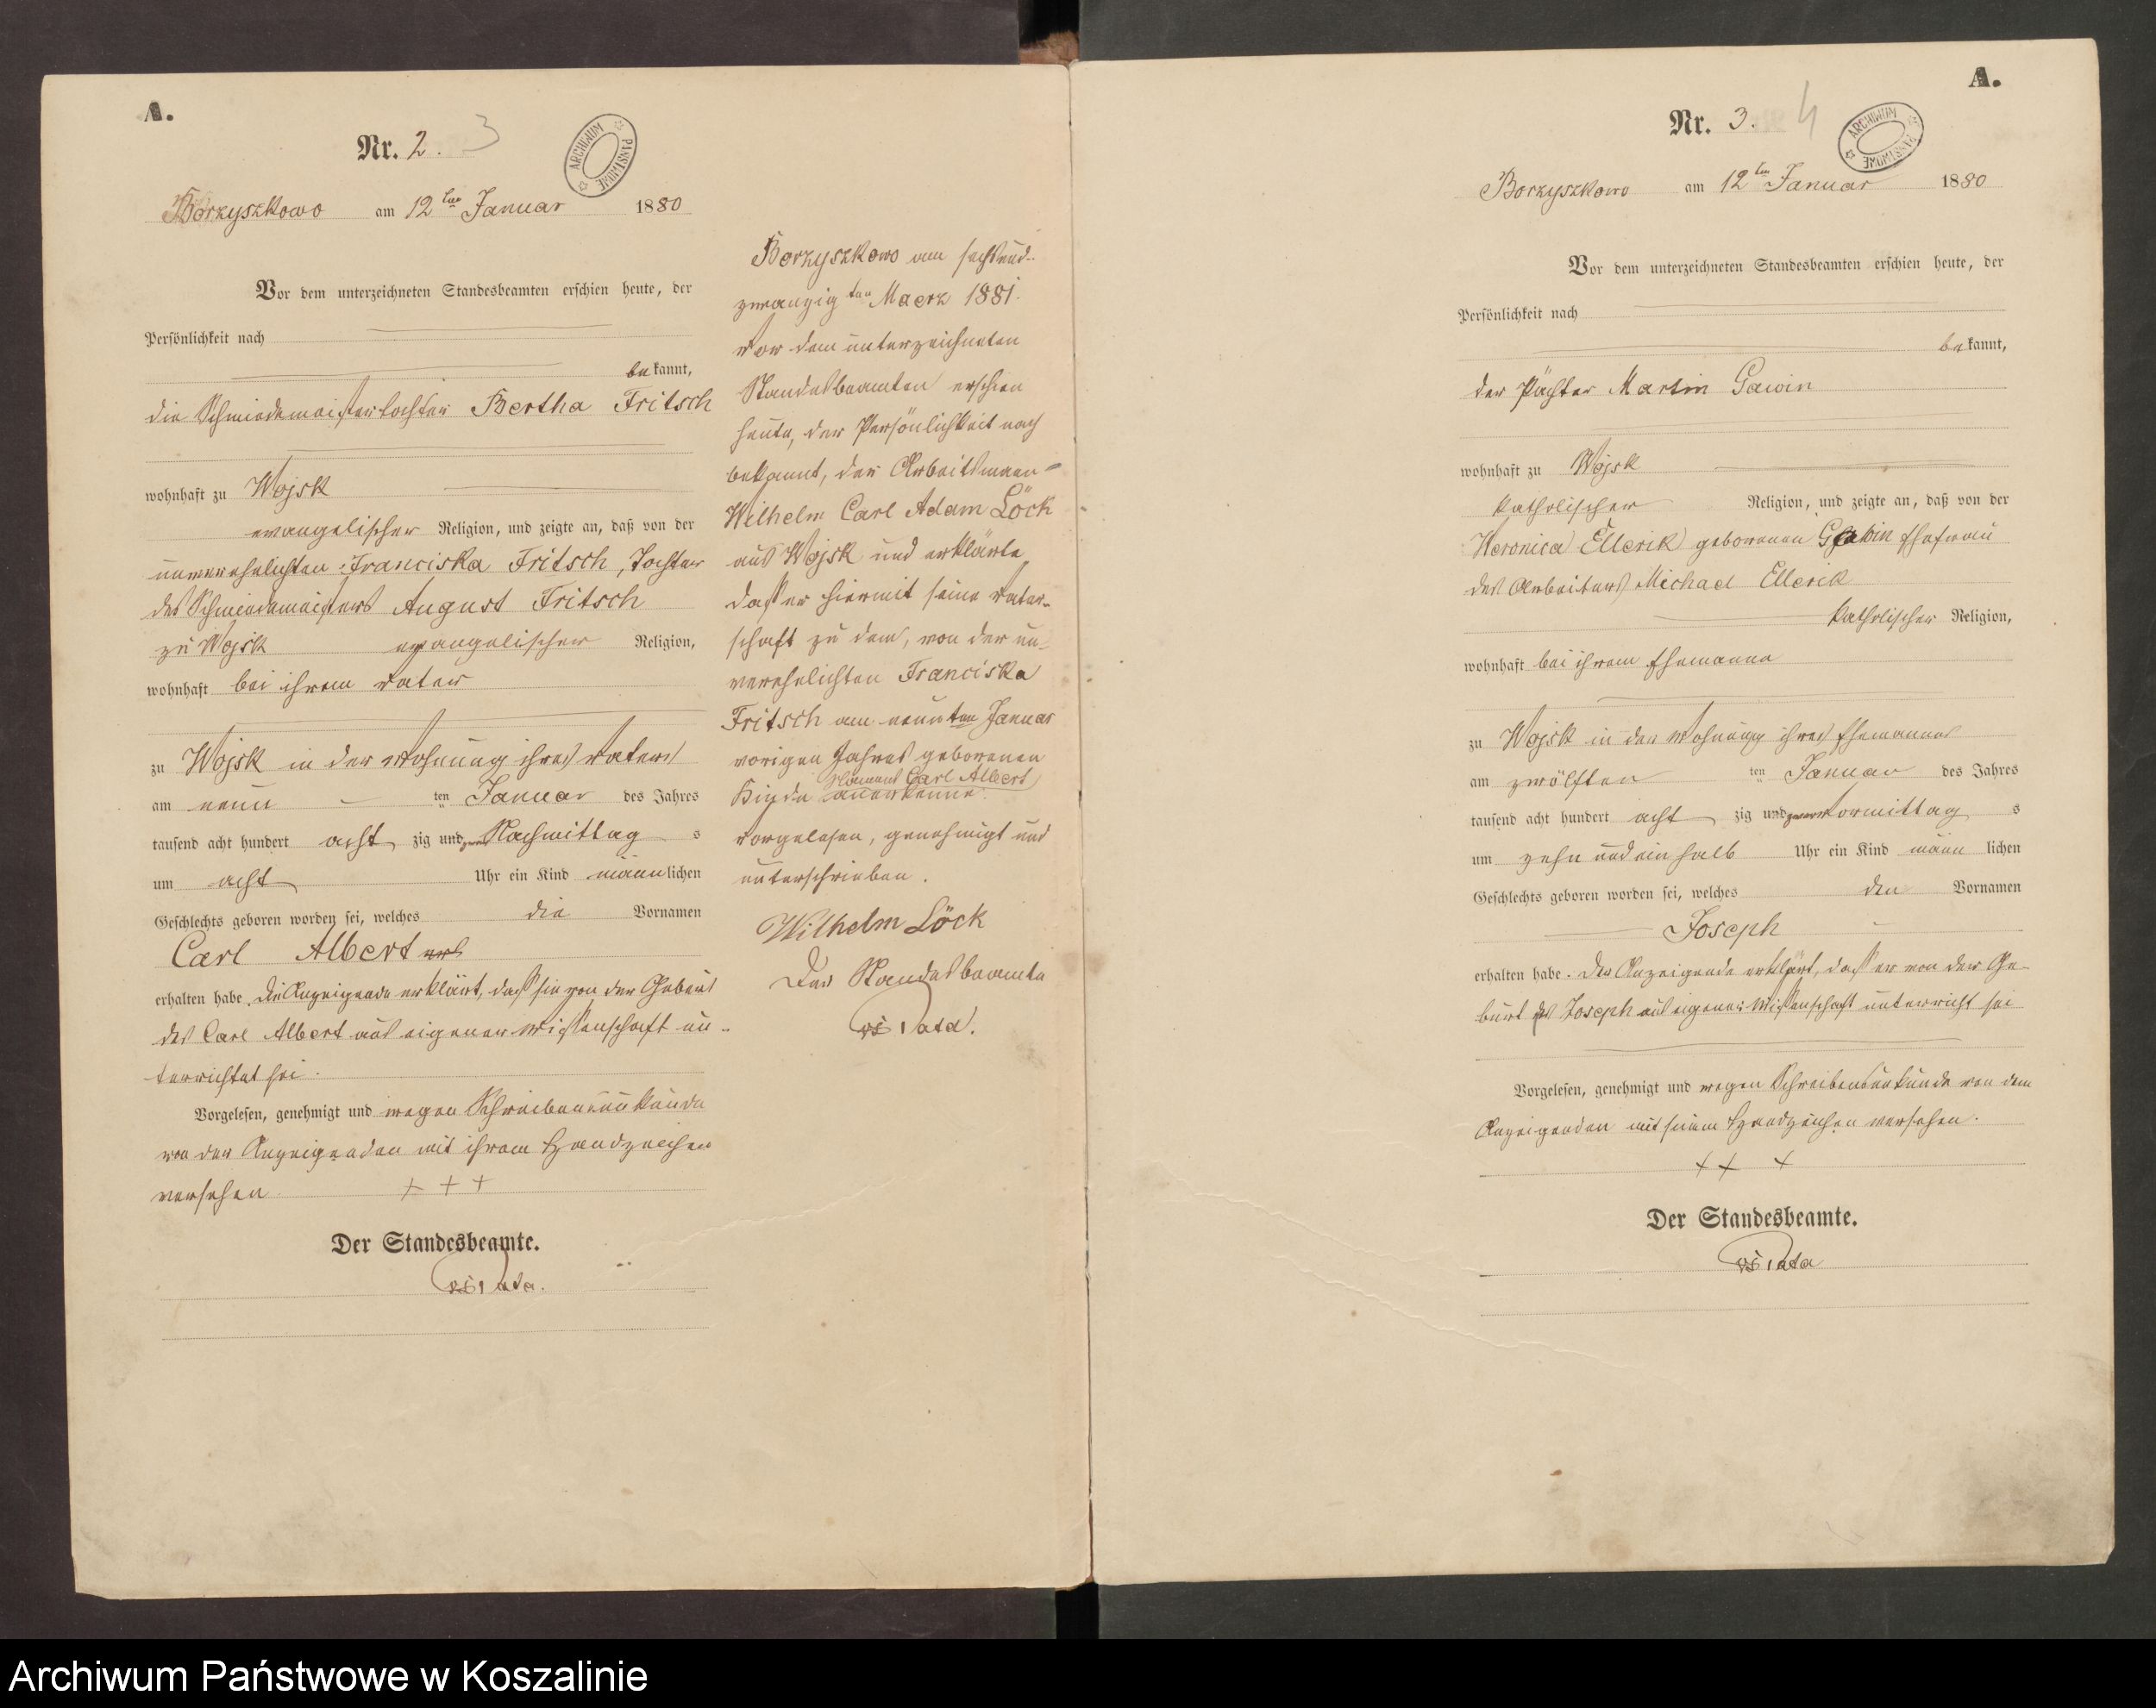 A.
Nr. 2. 3
ARCHIWUM PAŃSTWOWE
Borzyszkowo am 12ten Januar 1880
Vor dem unterzeichneten Standesbeamten erschien heute, der
Persönlichkeit nach
bekannt,
die Schmiedemeistertochter Bertha Fritsch
wohnhaft zu Wojsk
evangelischer Religion, und zeigte an, daß von der
unverehelichten Franciska Fritsch, Tochter
des Schmiedemeisters August Fritsch
zu Wojsk evangelischer Religion,
wohnhaft bei ihrem Vater
zu Wojsk in der Wohnung ihres Vaters
am neun ten Januar des Jahres
tausend acht hundert acht zig und Nachmittag s
um acht Uhr ein Kind männlichen
Geschlechts geboren worden sei, welches die Vornamen
Carl Albert
erhalten habe. Die Anzeigende erklärt, dass sie von der Geburt
des Carl Albert aus eigener Wissenschaft un-
terrichtet sei.
Vorgelesen, genehmigt und wegen Schreibensunkunde
von der Anzeigenden mit ihrem Handzeichen
versehen. + + +
Der Standesbeamte.
Borzyszkowo am sechsund-
zwanzigten Maerz 1881.
Vor dem unterzeichneten
Standesbeamten erschien
heute, der Persönlichkeit nach
bekannt, der Arbeitsmann
Wilhelm Carl Adam Löck
aus Wojsk und erklärte
dass er hiermit seine Vater-
schaft zu dem, von der un-
verehelichten Franciska
Fritsch am neunten Januar
vorigen Jahres geborenen
Namens Carl Albert
Kinde anerkenne.
Vorgelesen, genehmigt und
unterschrieben.
Wilhelm Löck
Der Standesbeamte
A.
Nr. 3. 4
ARCHIWUM PAŃSTWOWE
Borzyszkowo am 12ten Januar 1880
Vor dem unterzeichneten Standesbeamten erschien heute, der
Persönlichkeit nach
bekannt,
der Pächter Martin Gawin
wohnhaft zu Wojsk
katholischer Religion, und zeigte an, daß von der
Weronica Ellerik geborenen Gawin Ehefrau
des Arbeiters Michael Ellerik
katholischer Religion,
wohnhaft bei ihrem Ehemanne
zu Wojsk in der Wohnung ihres Ehemannes
am zwölften ten Januar des Jahres
tausend acht hundert acht zig und Vormittag s
um zehn und ein halb Uhr ein Kind männ lichen
Geschlechts geboren worden sei, welches den Vornamen
Joseph
erhalten habe. Der Anzeigende erklärt, dass er von der Ge-
burt des Joseph aus eigener Wissenschaft unterricht sei
Vorgelesen, genehmigt und wegen Schreibensunkunde von dem
Anzeigenden mit seinem Handzeichen versehen.
+ + +
Der Standesbeamte.
Archiwum Państwowe w Koszalinie